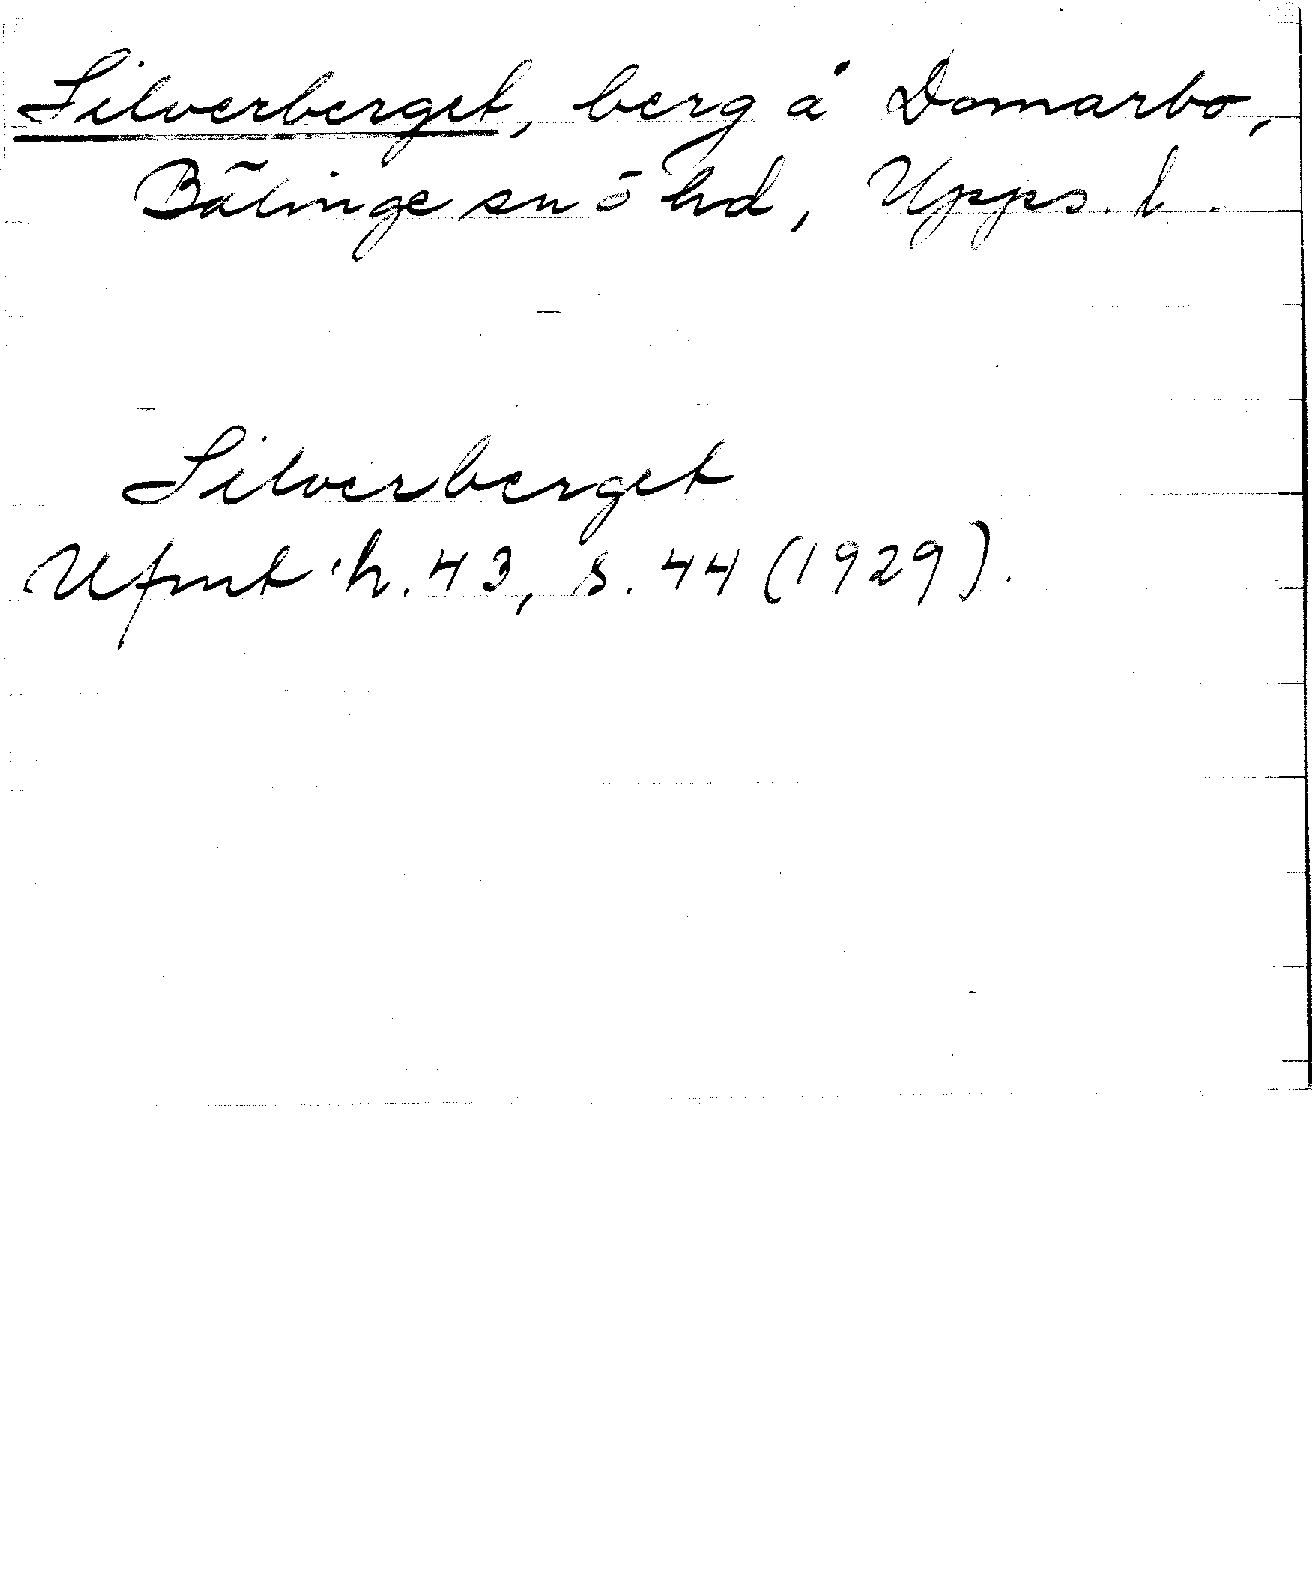 Silverberget, berg å Domarbo,
Bälinge sn ō hd, Upps. l.
Silverberget
Ufmt h. 43, s. 44 (1929).